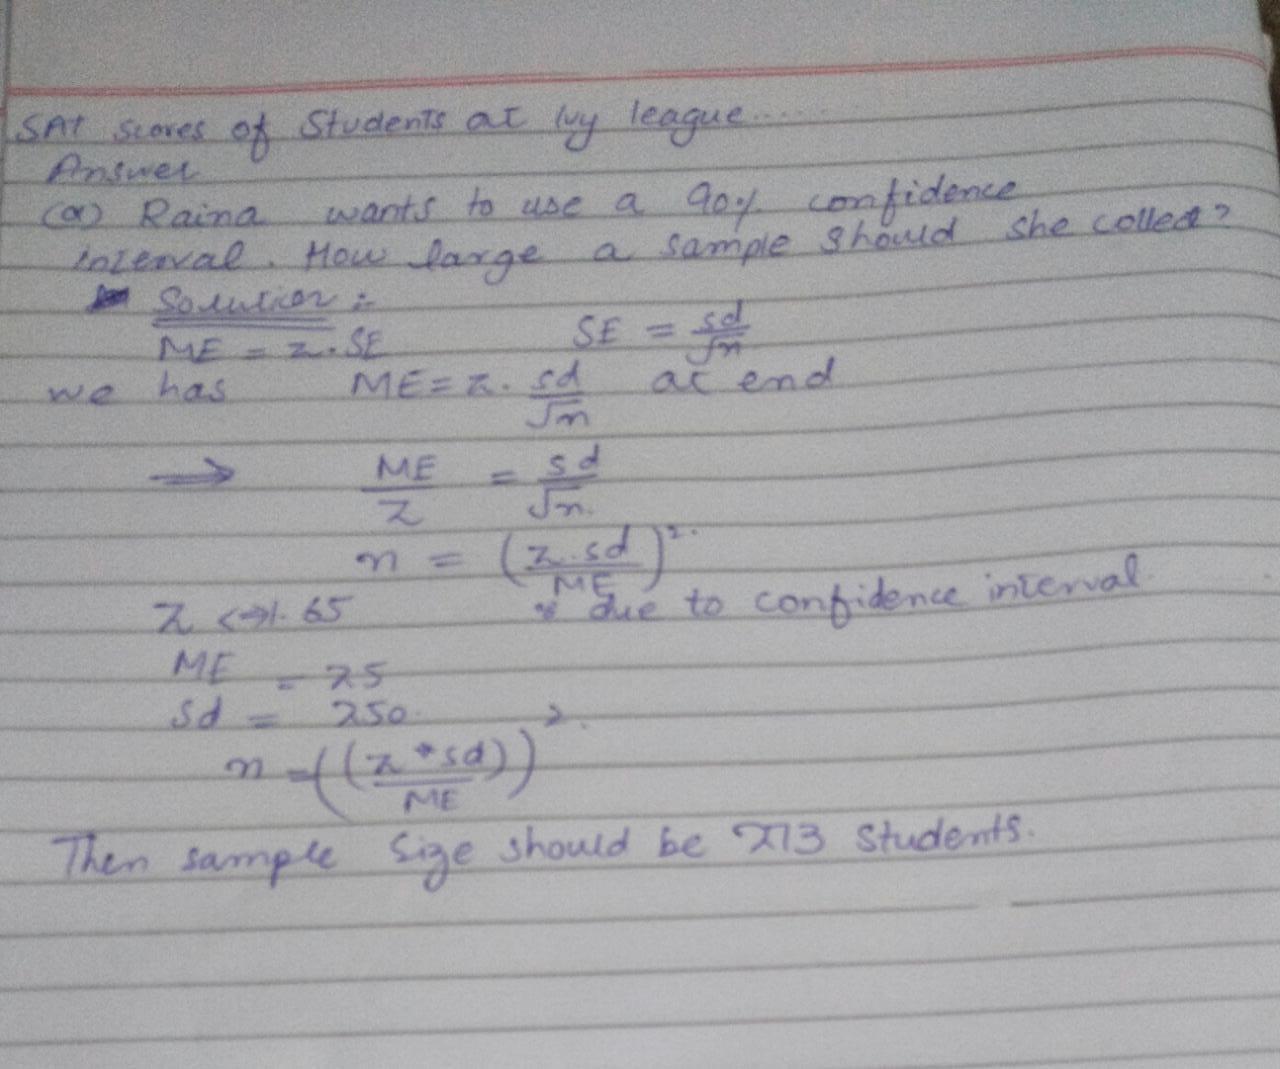 SAT scores of Students at Ivy league.....
Answer
(a) Raina wants to use a 90% confidence
interval. How large a sample should she collect?
Solution :-
ME = z. SE SE = sd/√n
we has ME = z. sd/√n at end
⇒ ME/z = sd/√n.
n = (z.sd/ME)².
z <=> 1.65 due to confidence interval.
ME = 25
sd = 250.
n = ((z*sd)/ME)².
Then sample size should be 273 students.